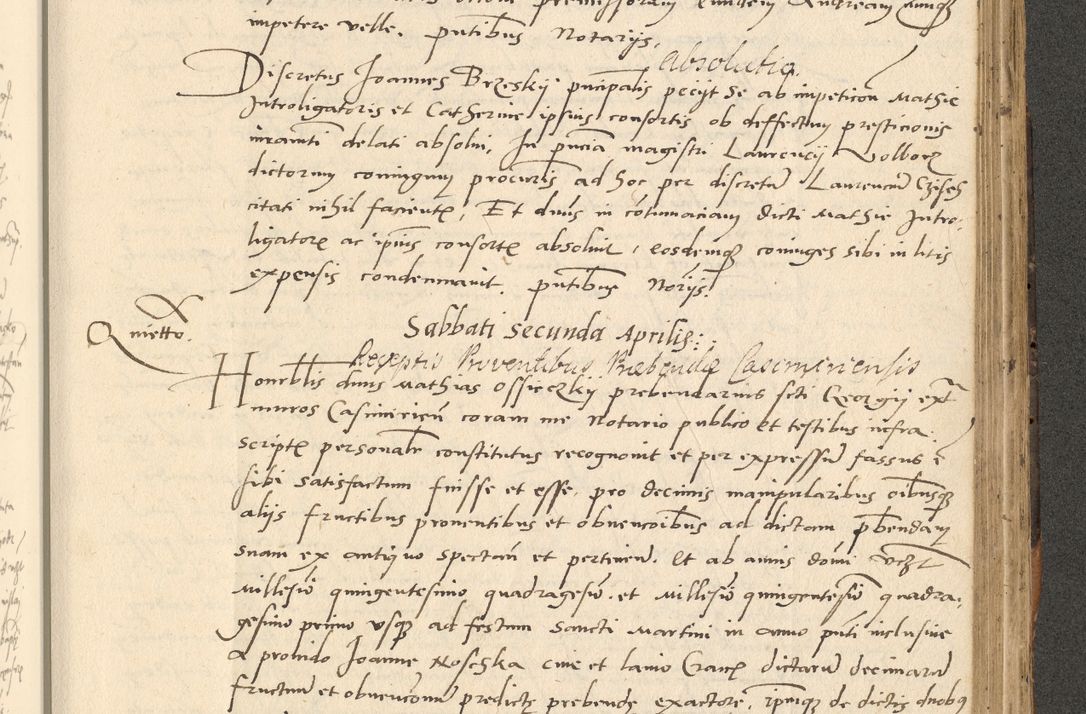 impetere velle. pntibus Notarijs.
Absolutio.
Discretus Joannes Brzeskij principalis pecijt se ab impeticon Mathie
Introligatoris et Catherine ipsius consortis ob deffectum presticionis
iuramti delati absolui, In pnciam magistri Laurencij Volborz
dictorum coniugum procuris ad hoc per discretu Laurenciu
citati nihil facientz, Et dnus in cotumaciam dicti Mathie Intro-
ligatorz ac ipius consortz absoluit, eosdemqz coniuges sibi in litis
expensis condemnauit. pntibus Norijs.
Sabbati Secunda Aprilis:
Quietto.
Receptis Proventibus Præbendæ Casimiriensis
Honrblis dnus Mathias Ossieczkij prebendarius scti Georgij ext
muros Casimirien coram me Notario publico et testibus infra
scriptz personalr constitutus recognouit et per expressu fassus e
sibi satisfactum fuisse et esse, pro decimis manipularibus oibusqz
alijs fructibus prouentibus et obuencoibus ad dictam pbendam
suam ex antiquo spectan et pertinen. Et ab annis domi
Millesio quingentesimo quadragesio. et Millesio quingentesio quadra-
gesimo primo vsqz ad festum Sancti Martini in anno pnti inclusiue
a prouido Joanne Noschka ciue et lanio Cracz dictaru decimaru
fructuu et obuencionu predicte prebende exactore, ipmqz de dictis duobus